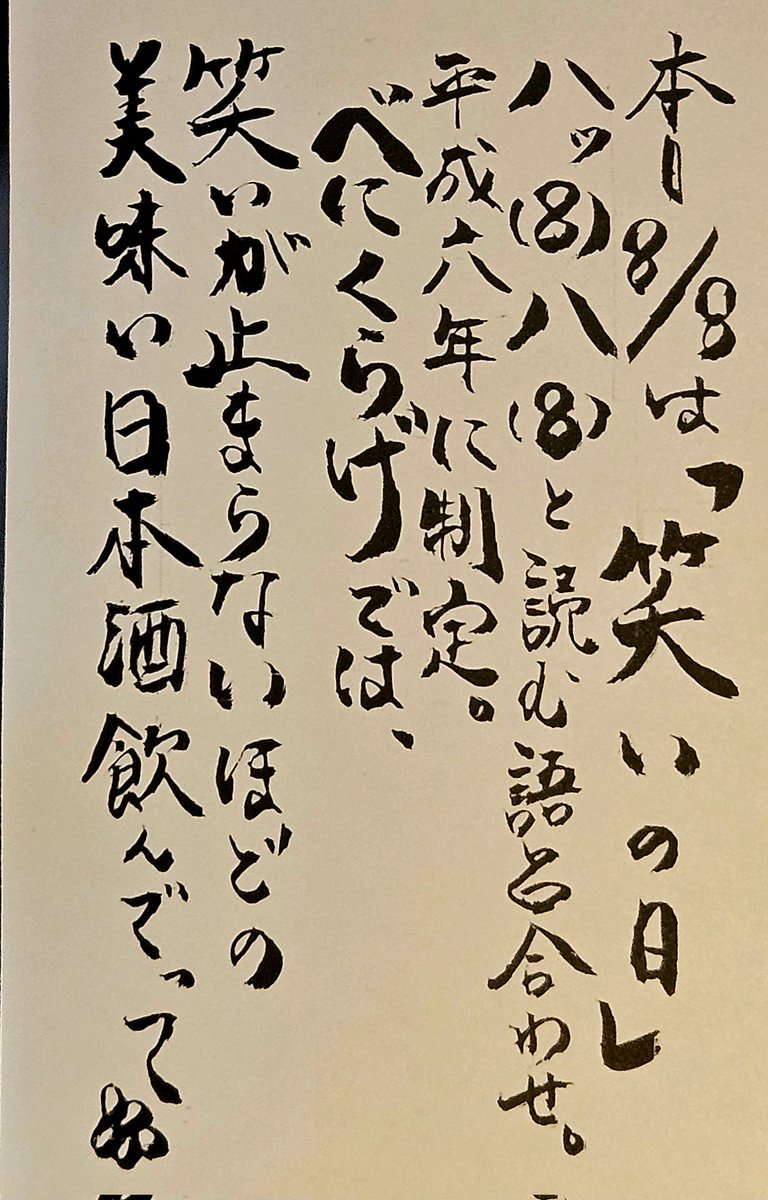 本日8/8は「笑いの日」
ハッ(8)ハ(8)と読む語呂合わせ。
平成六年に制定。
べにくらげでは、
笑いが止まらないほどの
美味い日本酒飲んでって